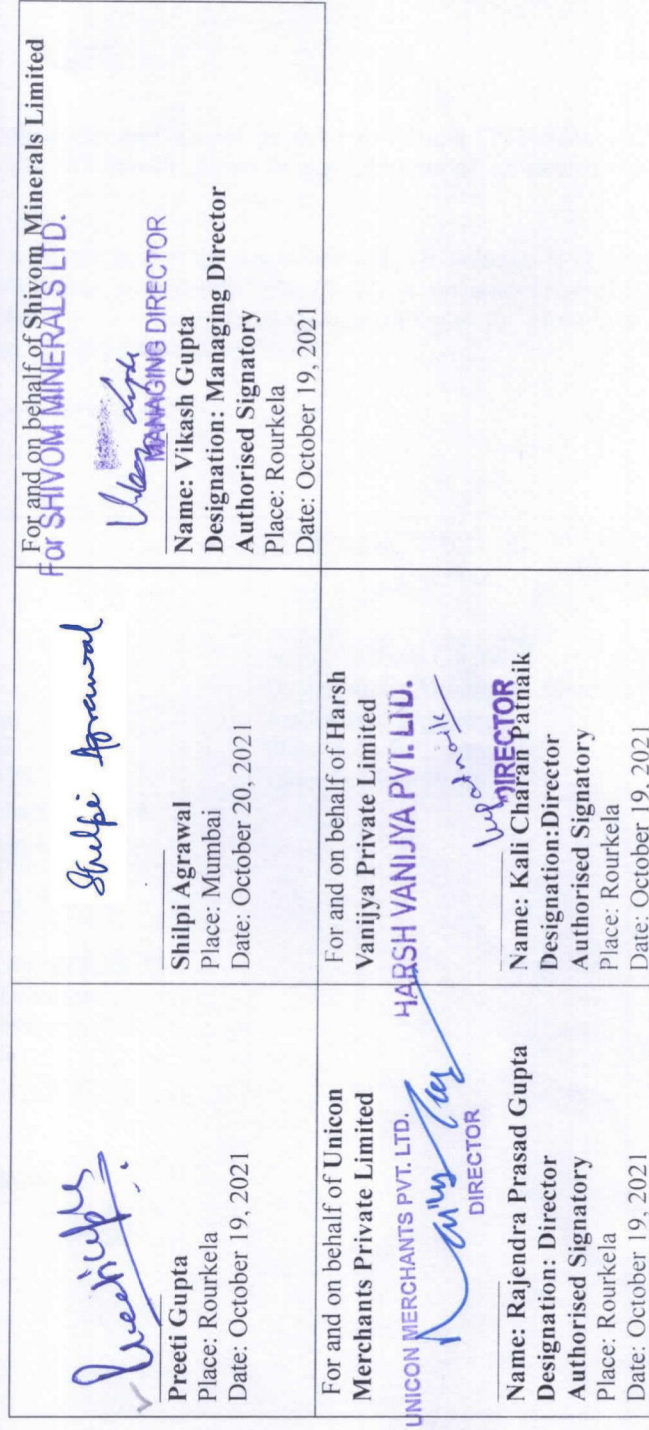 Preeti Gupta
Preeti Gupta
Place: Rourkela
Date: October 19, 2021
Shilpi Agrawal
Shilpi Agrawal
Place: Mumbai
Date: October 20, 2021
For and on behalf of Shivom Minerals Limited
For SHIVOM MINERALS LTD.
Vikash Gupta
MANAGING DIRECTOR
Name: Vikash Gupta
Designation: Managing Director
Authorised Signatory
Place: Rourkela
Date: October 19, 2021
For and on behalf of Unicon
Merchants Private Limited
UNICON MERCHANTS PVT. LTD.
DIRECTOR
Name: Rajendra Prasad Gupta
Designation: Director
Authorised Signatory
Place: Rourkela
Date: October 19, 2021
For and on behalf of Harsh
Vanijya Private Limited
HARSH VANIJYA PVT. LTD.
DIRECTOR
Name: Kali Charan Patnaik
Designation:Director
Authorised Signatory
Place: Rourkela
Date: October 19, 2021